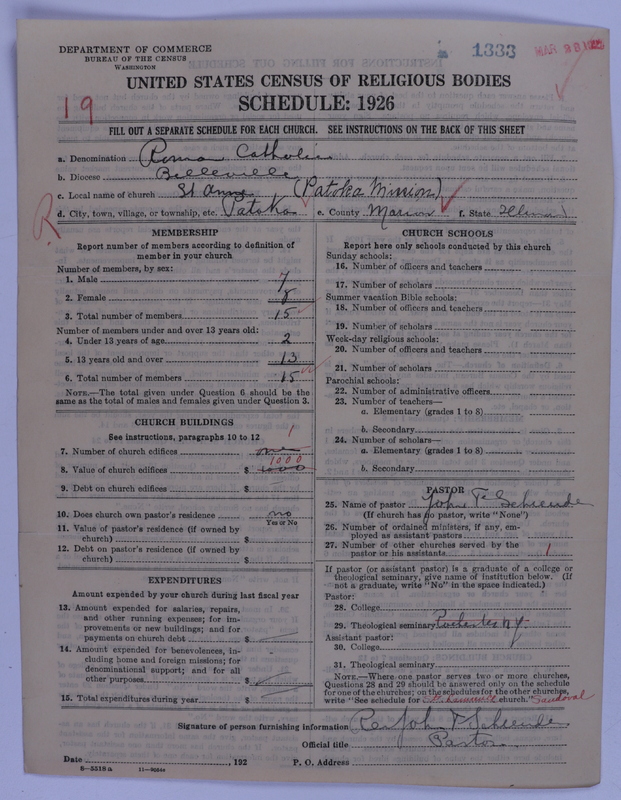 DEPARTMENT OF COMMERCE
BUREAU OF THE CENSUS
WASHINGTON
1333
MAR 23
19
UNITED STATES CENSUS OF RELIGIOUS BODIES
SCHEDULE: 1926
FILL OUT A SEPARATE SCHEDULE FOR EACH CHURCH. SEE INSTRUCTIONS ON THE BACK OF THIS SHEET
a. Denomination Roman Catholic
b. Diocese Belleville
c. Local name of church St Anne (Patoka Mission)
d. City, town, village, or township, etc. Patoka e. County Marion f. State Illinois
R
MEMBERSHIP
Report number of members according to definition of
member in your church
Number of members, by sex:
1. Male 7
2. Female 8
3. Total number of members 15
Number of members under and over 13 years old:
4. Under 13 years of age 2
5. 13 years old and over 13
6. Total number of members 15
NOTE.—The total given under Question 6 should be the
same as the total of males and females given under Question 3.
CHURCH BUILDINGS
See instructions, paragraphs 10 to 12
1
7. Number of church edifices one
1000
8. Value of church edifices $ 1000
9. Debt on church edifices $
10. Does church own pastor's residence no
Yes or No
11. Value of pastor's residence (if owned by
church) $
12. Debt on pastor's residence (if owned by
church) $
EXPENDITURES
Amount expended by your church during last fiscal year
13. Amount expended for salaries, repairs,
and other running expenses; for im-
provements or new buildings; and for
payments on church debt $
14. Amount expended for benevolences, in-
cluding home and foreign missions; for
denominational support; and for all
other purposes $
15. Total expenditures during year $
CHURCH SCHOOLS
Report here only schools conducted by this church
Sunday schools:
16. Number of officers and teachers
17. Number of scholars
Summer vacation Bible schools:
18. Number of officers and teachers
19. Number of scholars
Week-day religious schools:
20. Number of officers and teachers
21. Number of scholars
Parochial schools:
22. Number of administrative officers
23. Number of teachers—
a. Elementary (grades 1 to 8)
b. Secondary
24. Number of scholars—
a. Elementary (grades 1 to 8)
b. Secondary
PASTOR
25. Name of pastor John T.
(If church has no pastor, write "None")
26. Number of ordained ministers, if any, em-
ployed as assistant pastors
27. Number of other churches served by the
pastor or his assistants 1
If pastor (or assistant pastor) is a graduate of a college or
theological seminary, give name of institution below. (If
not a graduate, write "No" in the space indicated.)
Pastor:
28. College
29. Theological seminary Rochester N.Y.
Assistant pastor:
30. College
31. Theological seminary
NOTE.—Where one pastor serves two or more churches,
Questions 28 and 29 should be answered only on the schedule
for one of the churches; on the schedules for the other churches,
write "See schedule for St. Lawrence church." Sandoval
Signature of person furnishing information Rev John T
Official title Pastor
Date , 192 P. O. Address
8-5318a 11-90544